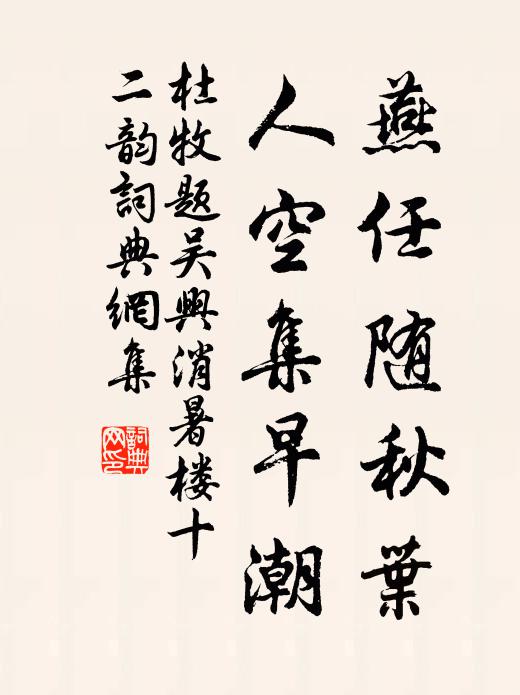 燕任随秋葉
人空集早潮
杜牧题吴興消暑楼十
二韵詞典網集
詞典
网印